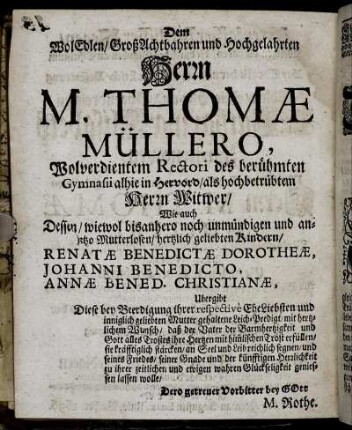 Dem
WolEdlen/ GroßAchtbahren und Hochgelahrten
Herrn
M. THOMÆ
MÜLLERO,
Wolverdientem Rectori des berühmten
Gymnasii alhie in Hervord/ als hochbetrübtem
Herrn Witwer/
Wie auch
Dessen/ wiewol bisanhero noch unmündigen und an-
jetzo Mutterlosen/ hertzlich geliebten Kindern/
RENATÆ BENEDICTÆ DOROTHEÆ,
JOHANNI BENEDICTO,
ANNÆ BENED. CHRISTIANÆ,
Ubergibt
Diese bey Beerdigung ihrer respectivè EheLiebsten und
inniglich geliebten Mutter gehaltene Leich-Predigt mit hertz-
lichem Wunsch/ daß der Vater der Barmhertzigkeit und
Gott alles Trostes ihre Hertzen mit himlischen Trost erfüllen/
sie kräfftiglich stärcken/ an Seel und Leib reichlich segnen/ und
seines Friedes/ seiner Gnade und der künfftigen Herrlichkeit
zu ihrer zeitlichen und ewigen wahren Glückseligkeit genies-
sen lassen wolle/
Dero getreuer Vorbitter bey GOtt
M. Rothe.